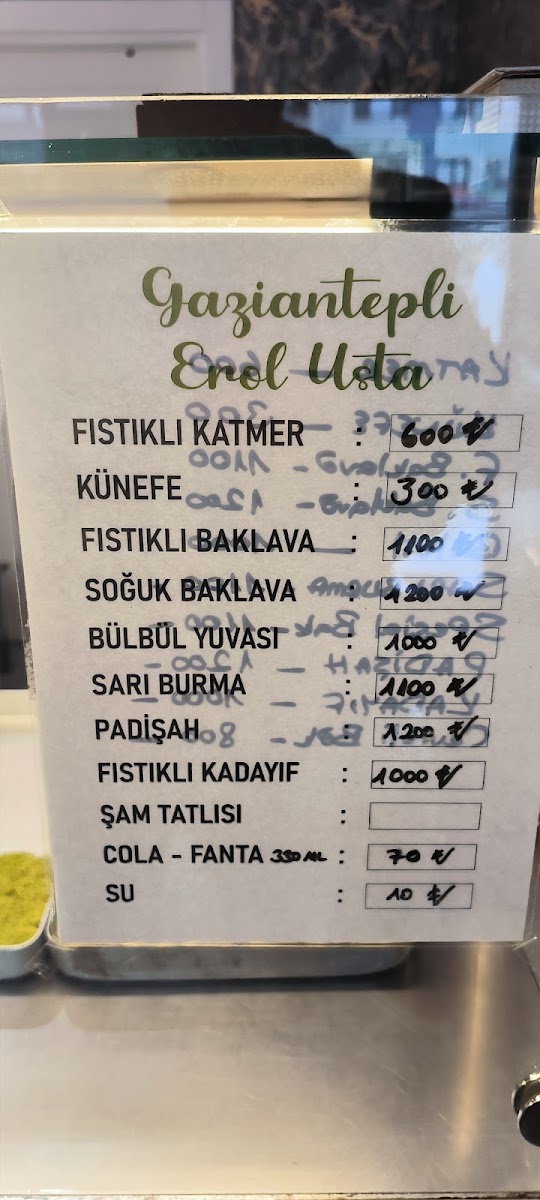 Gaziantepli
Erol Usta
FISTIKLI KATMER : 600 ₺
KÜNEFE : 300 ₺
FISTIKLI BAKLAVA : 1100 ₺
SOĞUK BAKLAVA : 1200 ₺
BÜLBÜL YUVASI : 1000 ₺
SARI BURMA : 1100 ₺
PADİŞAH : 1200 ₺
FISTIKLI KADAYIF : 1000 ₺
ŞAM TATLISI :
COLA - FANTA 330 ML : 70 ₺
SU : 10 ₺